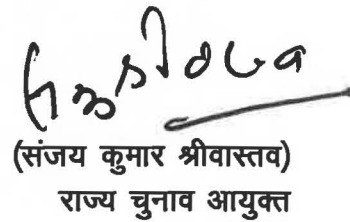 (संजय कुमार श्रीवास्तव)
राज्य चुनाव आयुक्त